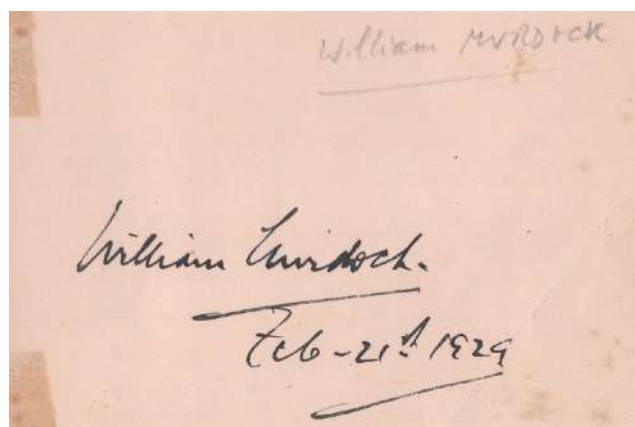 William MURDOCK
William Murdoch.
Feb - 21st 1929